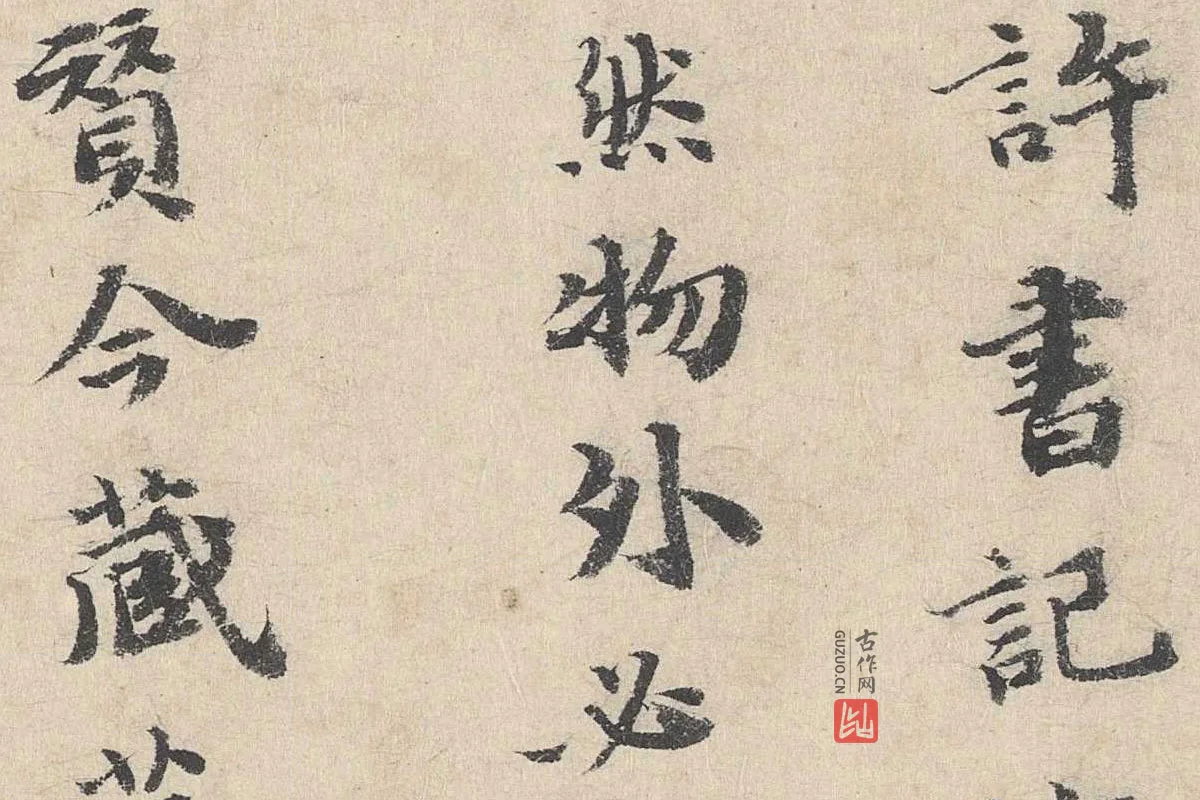 許書記
然物外必
贊今藏
古作网
GUZUO.CN